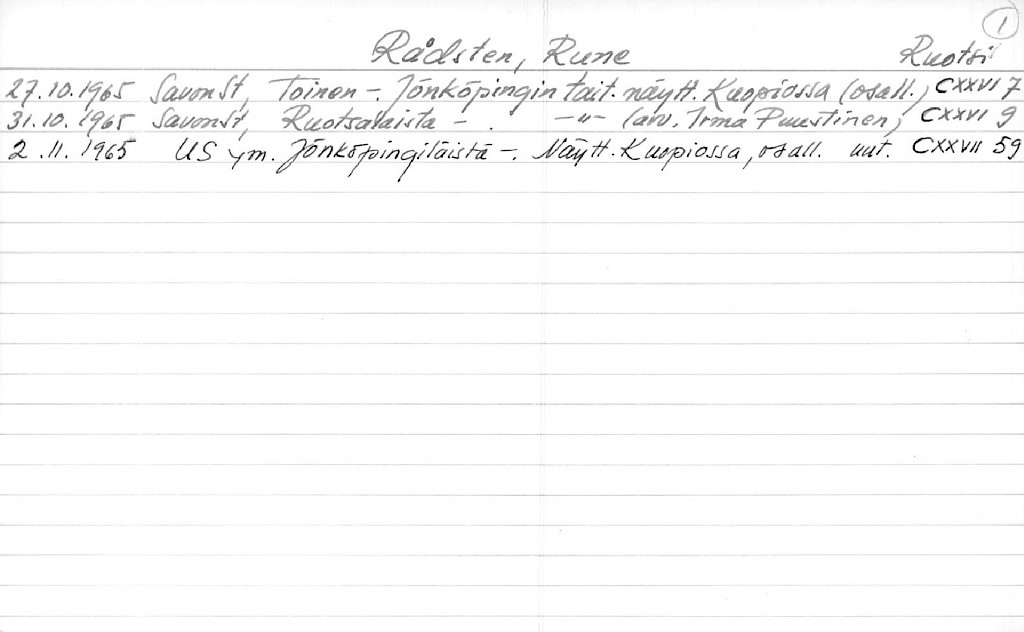 1
Rådsten, Rune Ruotsi
27.10.1965 SavonSt, Toinen -. Jönköpingin tait. näytt. Kuopiossa (osall.) CXXVI 7
31.10.1965 SavonSt, Ruotsalaista - . -"- (arv. Irma Puustinen) CXXVI 9
2.11.1965 US ym. Jönköpingiläistä -. Näytt. Kuopiossa, osall. uut. CXXVII 59